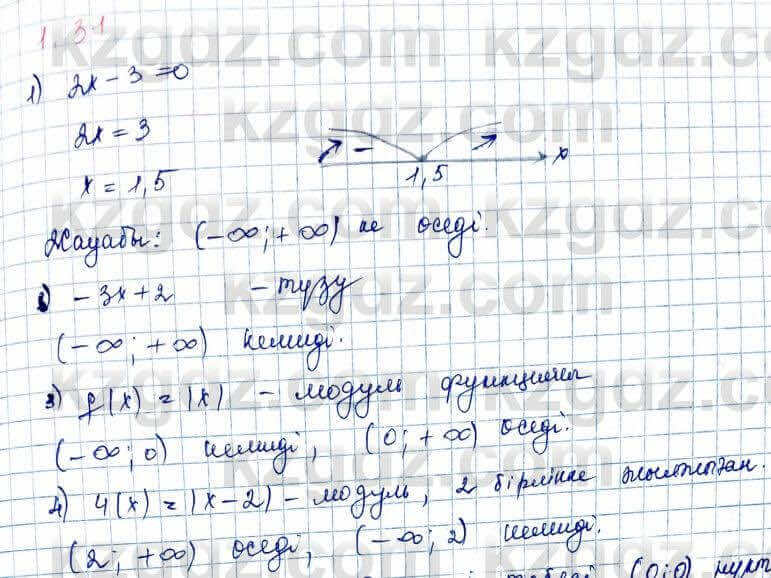 1.31
1) 2x - 3 = 0
2x = 3
x = 1,5
- 1,5 x
Жауабы: (-∞; +∞) өседі.
- 3x + 2 - түзу
(-∞; +∞) кемиді.
3) f(x) = |x| - модуль функциясы
(-∞; 0) кемиді, (0; +∞) өседі.
4) 4(x) = |x - 2| - модуль, 2 бірлікке жылжыған.
(2; +∞) өседі, (-∞; 2) кемиді.
(0; 0)
kzgdz.com